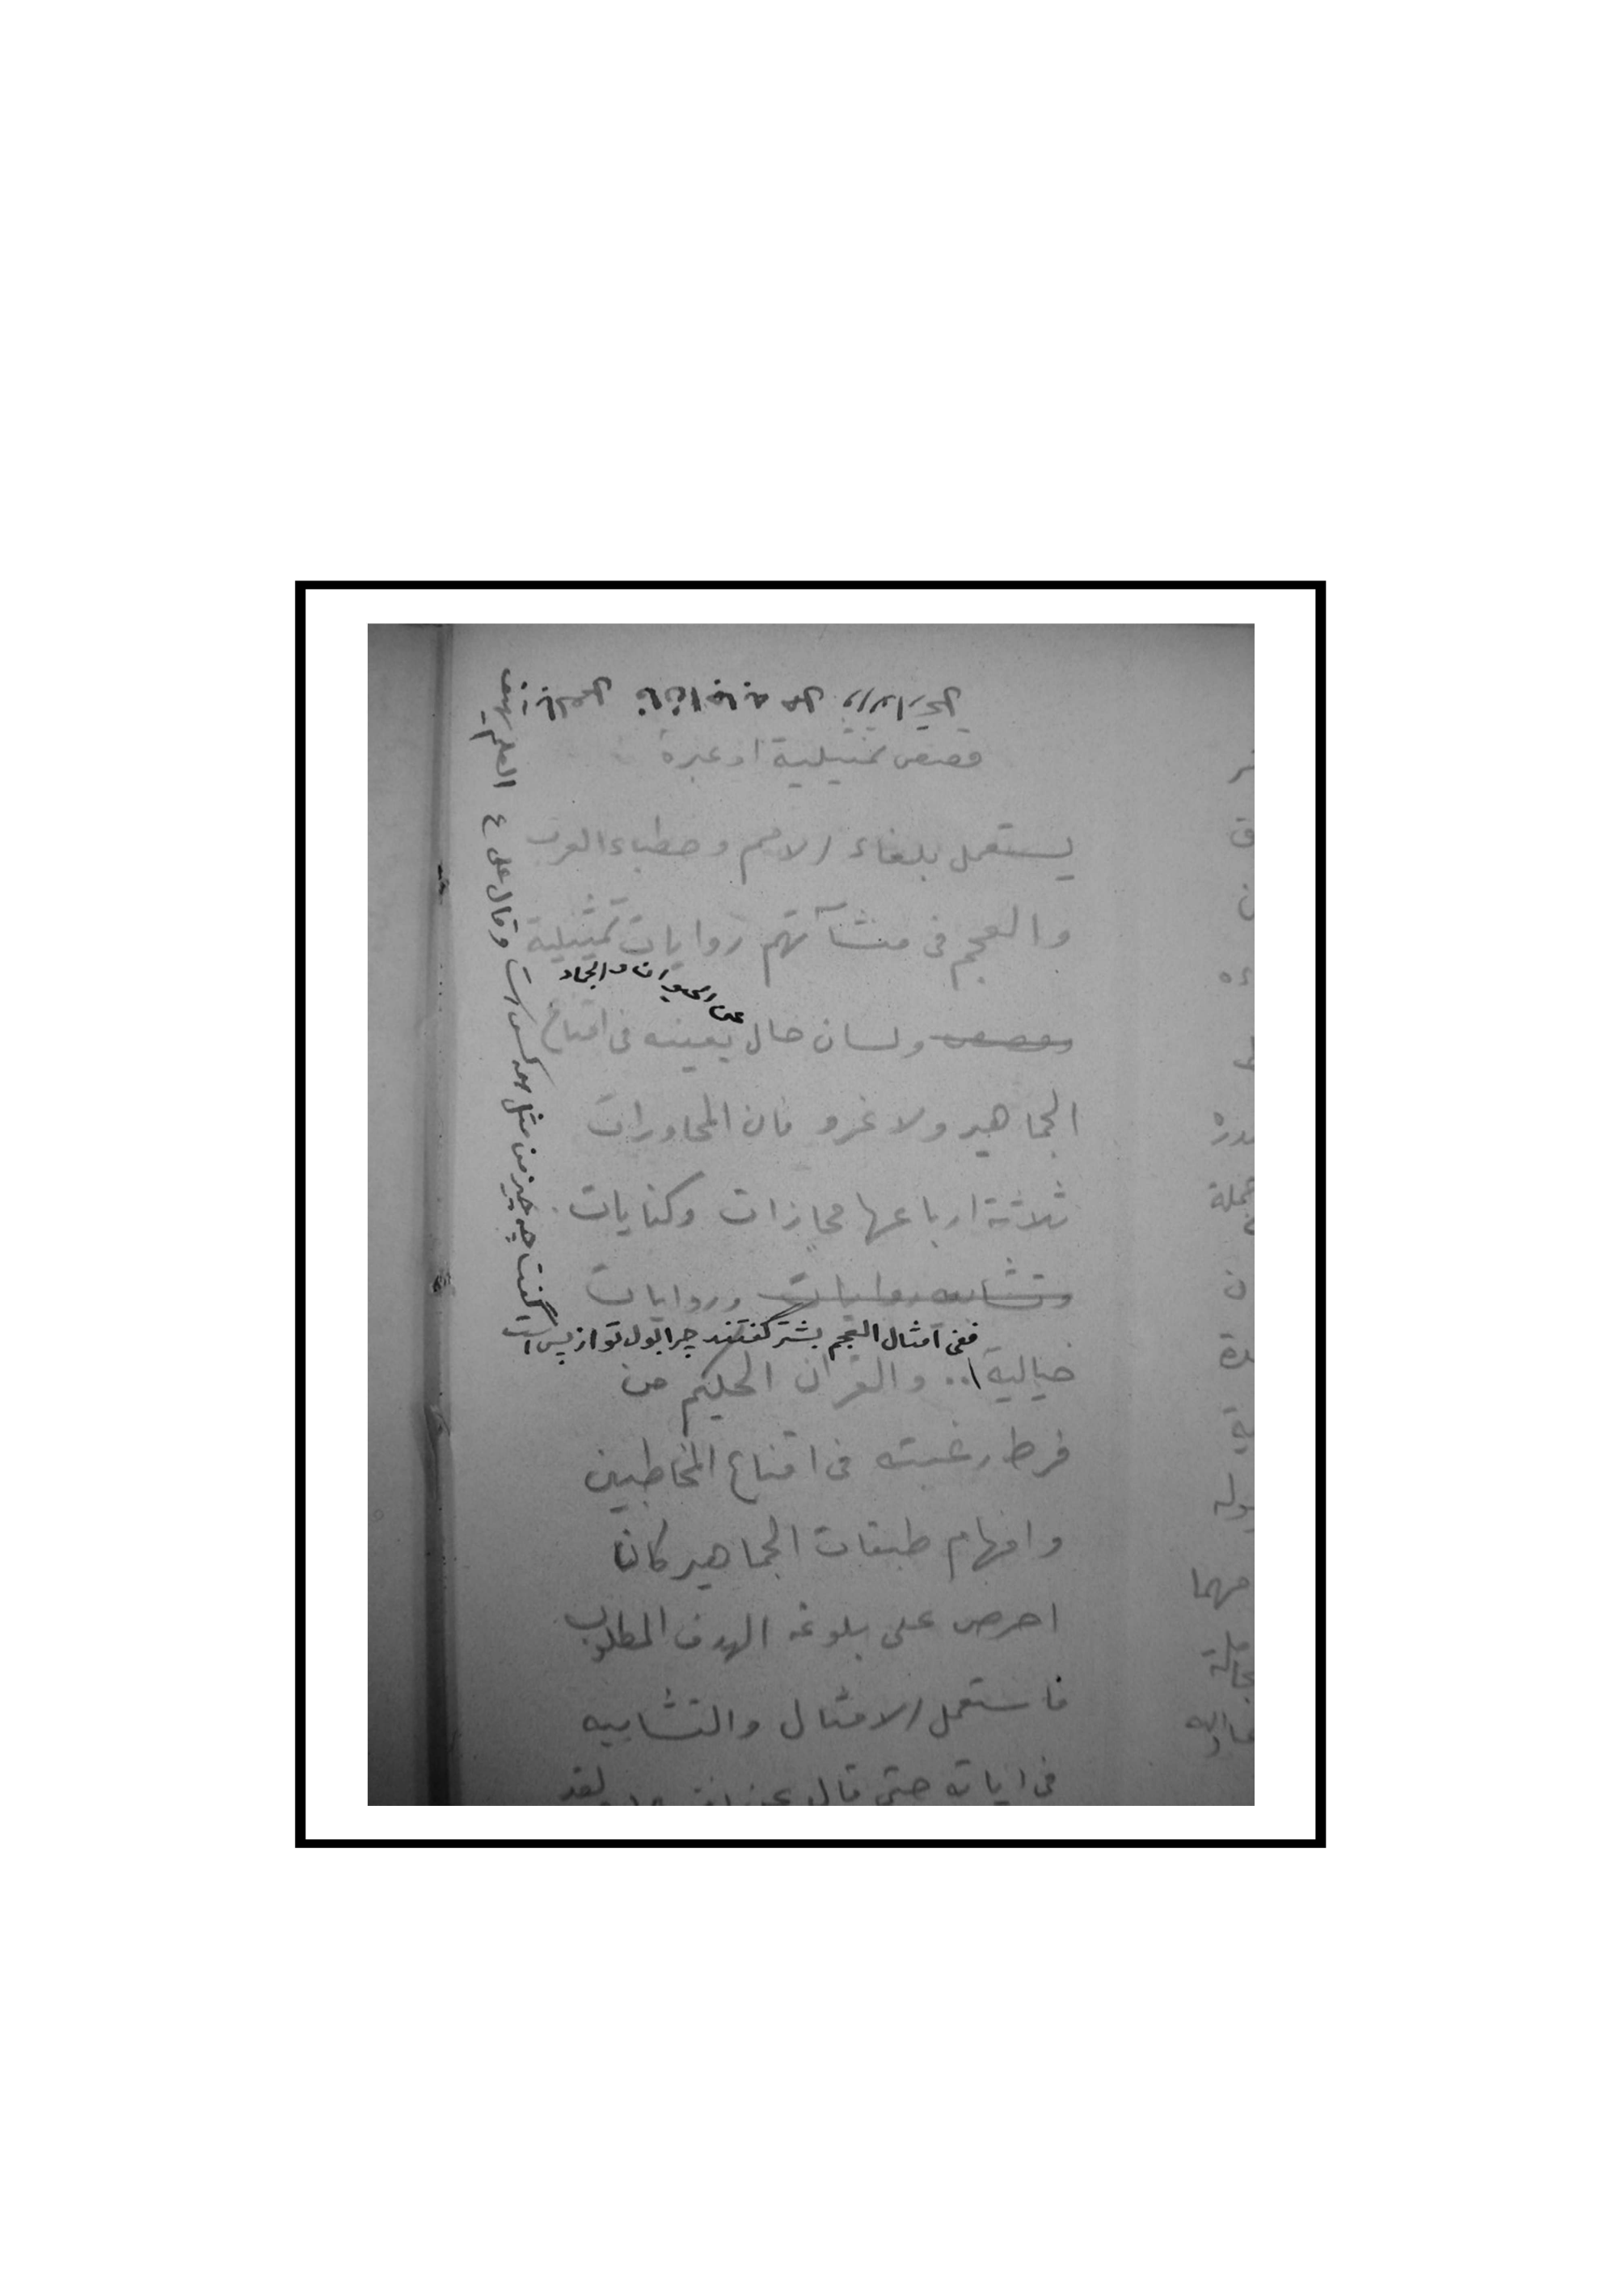 قصص تمثيلية او عبرة
يستعمل بلغاء الامم وخطباء العرب
والعجم فى منشآتهم روايات تمثيلية
عن الحيوان والجماد
ولسان حال يعينه فى اقناع
الجماهير ولا غرو فان المحاورات
ثلاثة ارباعها مجازات وكنايات
وروايات
ففى امثال العجم بشتر گفتند چرا بول تو از پس است
گفت چه چيز من مثل همه كس است وقال على ع العلم يهتف
خيالية .. والقرآن الحكيم من
فرط رغبته فى اقناع المخاطبين
وافهام طبقات الجماهير كان
احرص على بلوغه الهدف المطلوب
فاستعمل الامثال والتشابيه
فى اياته حتى قال لقد
مهما